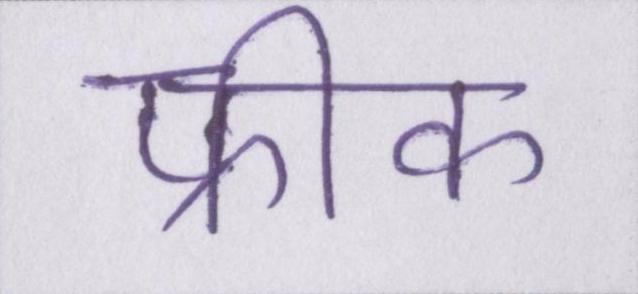 फ्रीक